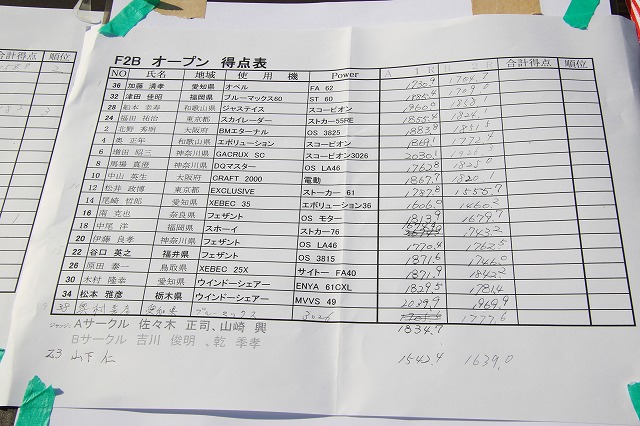 合計得点 順位
F2B オープン 得点表
NO 氏名 地域 使用機 Power A 1R B 2R 合計得点 順位
36 加藤 清孝 愛知県 オペル FA 62 1704.7
32 津田 佳昭 福岡県 ブルーマックス60 ST 60 1786.4 1709.0
28 船本 宏寿 和歌山県 ジャステイス スコーピオン 1960.0
24 福田 祐治 東京都 スカイレーダー ストカー55RE 1855.4 1824.1
2 北野 秀明 大阪府 BMエターナル OS 3825 1883.8 1851.5
4 奥 正年 和歌山県 エボリューション スコーピオン 1869.1
6 増田 昭三 神奈川県 GACRUX SC スコーピオン3026 2030.1
8 馬場 眞澄 神奈川県 DQマスター OS LA46 1762.8 1825.0
10 中山 英生 大阪府 CRAFT 2000 電動 1867.7 1820.1
12 松井 政博 東京都 EXCLUSIVE ストーカー 61 1787.8 1555.7
14 尾崎 哲郎 愛知県 XEBEC 35 エボリューション36 1606.0 1460.2
16 南 克也 奈良県 フェザント OS モター 1813.9 1679.7
18 中尾 洋 福岡県 スホーイ ストカー76 1743.2
20 伊藤 良孝 神奈川県 フェザント OS LA46 1770.4 1762.5
22 谷口 英之 福井県 フェザント OS 3815 1871.6 1746.0
26 原田 泰一 鳥取県 XEBEC 25X サイトー FA40 1871.9 1842.2
30 木村 隆幸 愛知県 ウインドーシェアー ENYA 61CXL 1829.5 1781.4
34 松本 雅彦 栃木県 ウインドーシェアー MVVS 49 2039.9 1969.9
38 愛知県 ブルーマックス 1777.6
ジャッジ Aサークル 佐々木 正司、山崎 興 1834.7
Bサークル 吉川 俊明 、乾 季孝
23 山下 仁 1542.4 1639.0